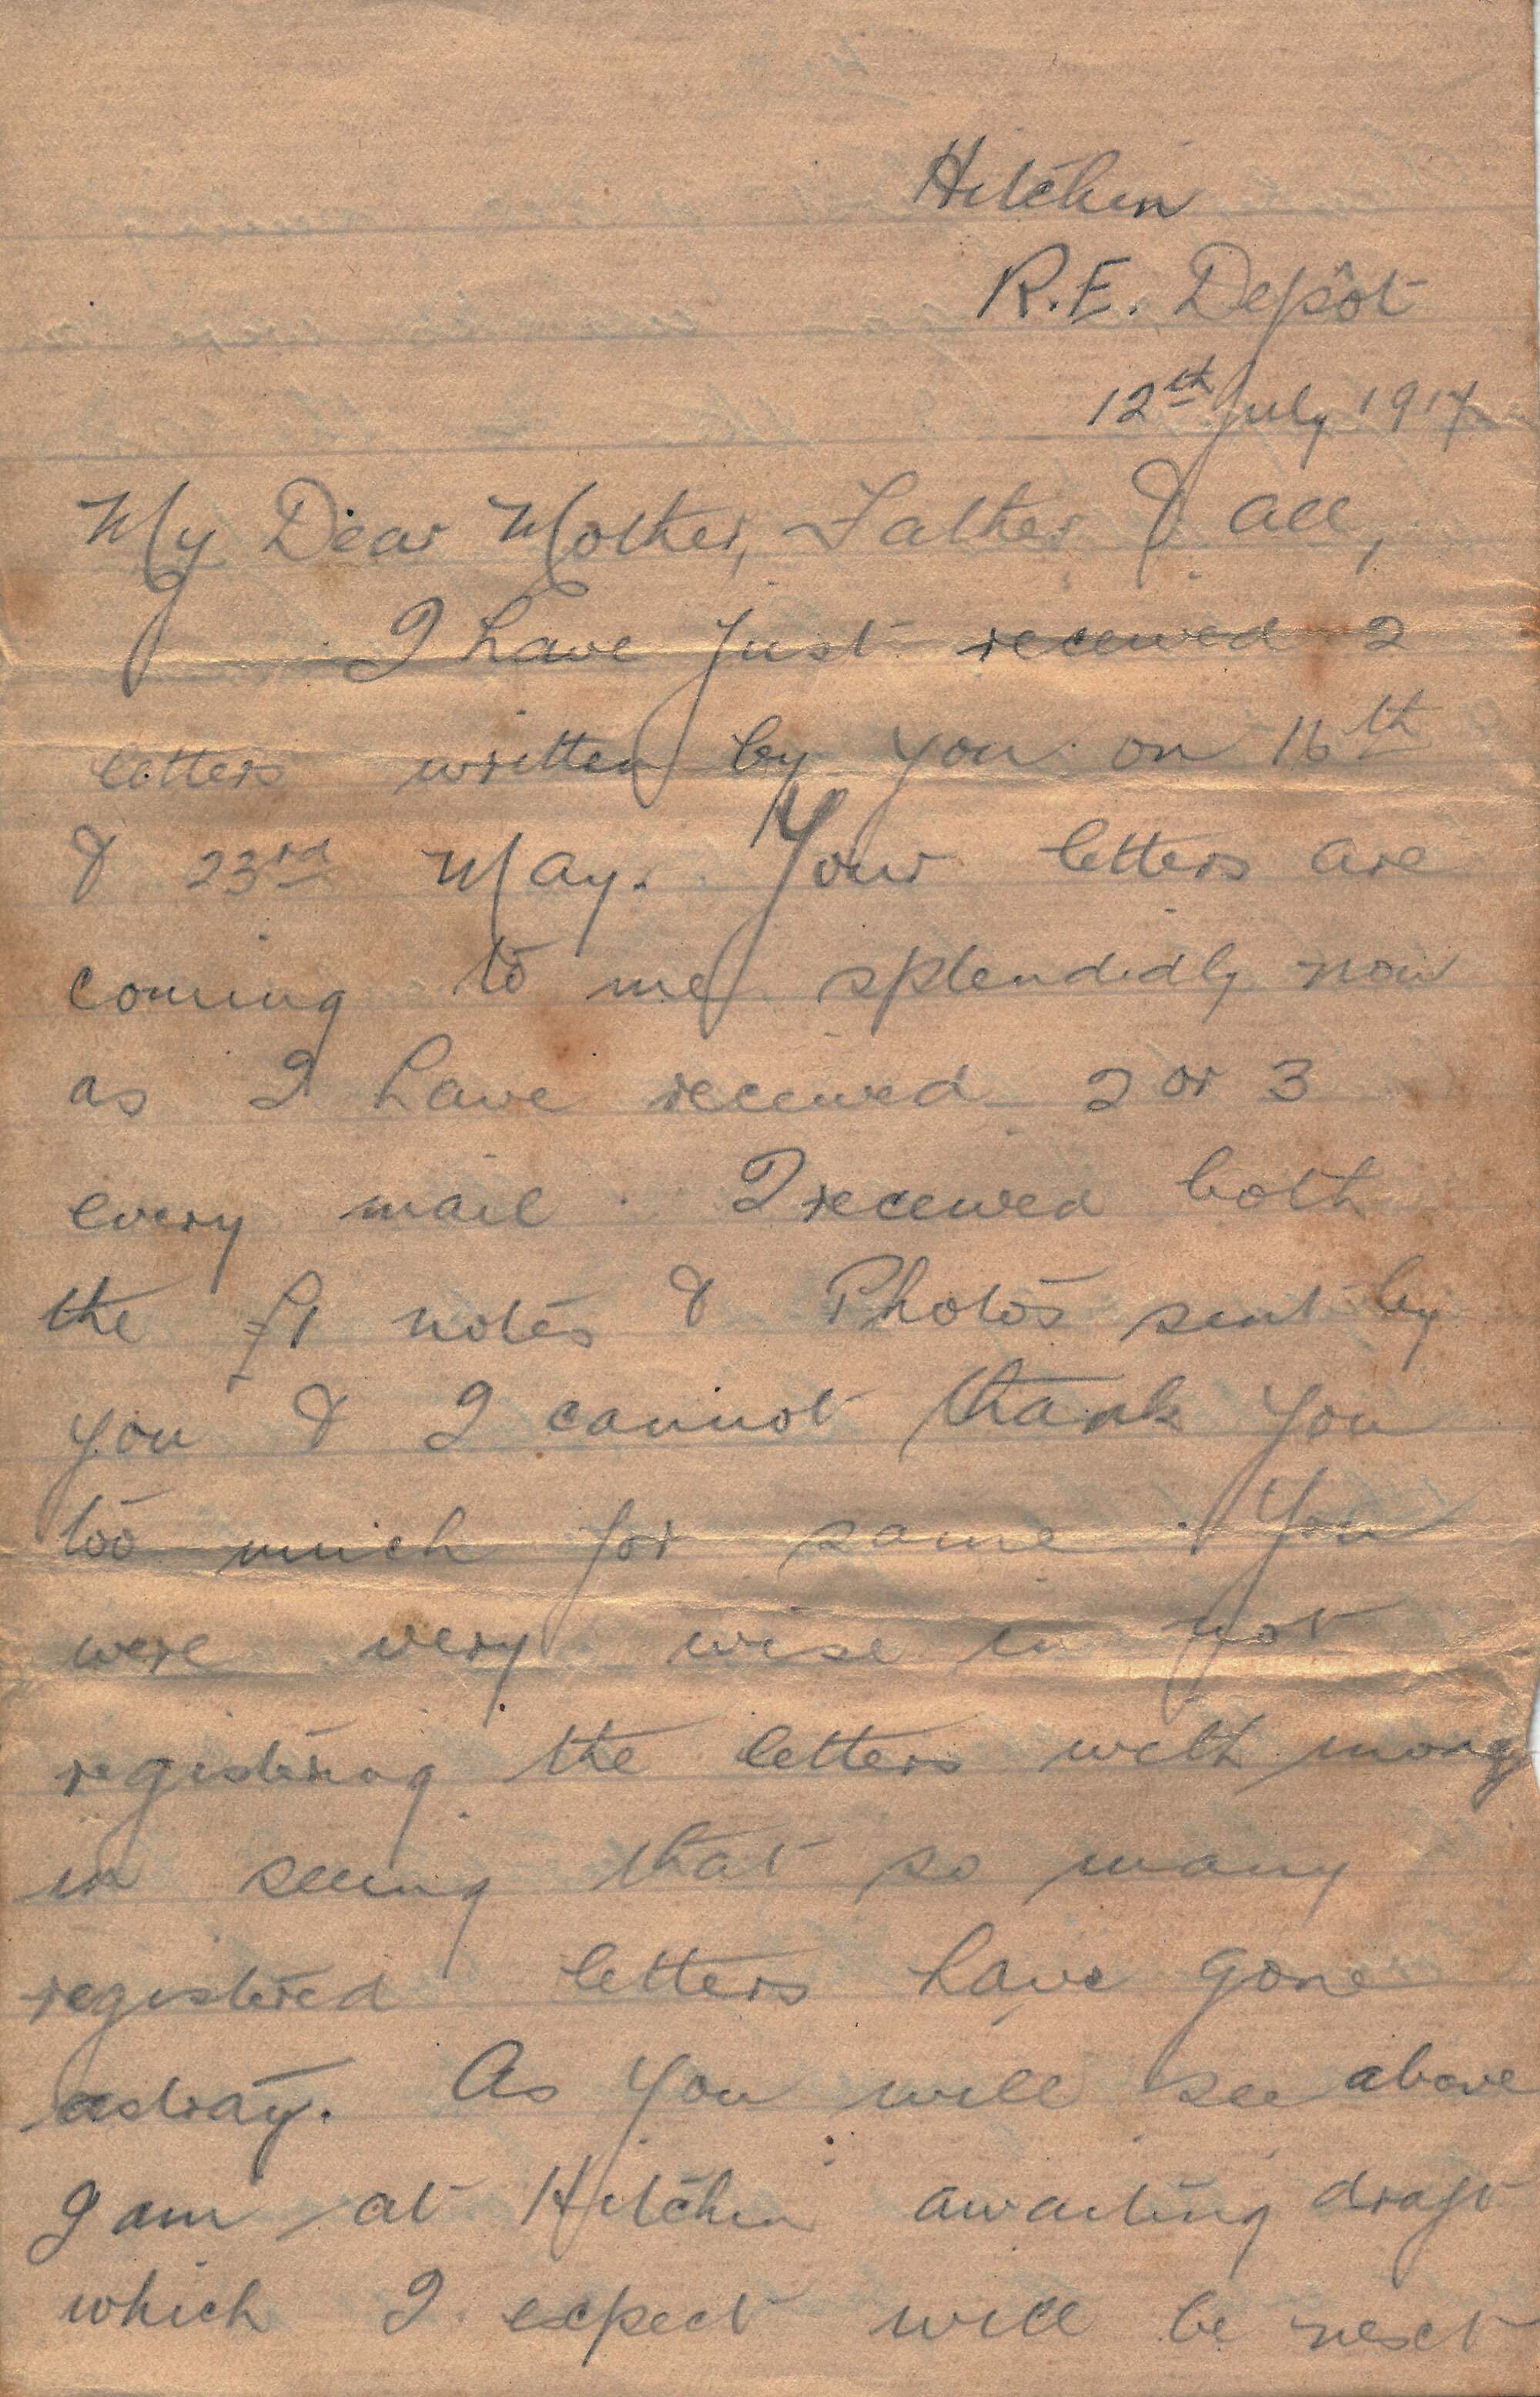 Hitchin
R.E. Depôt
12th July 1917
My Dear Mother, Father & all,
I have just received 2
letters written by you on 16th
& 23rd May. Your letters are
coming to me splendidly now
as I have received 2 or 3
every mail. I received both
the £1 notes & Photos sent by
you & I cannot thank you
too much for same. You
were very wise in not
registering the letters with money
in seeing that so many
registered letters have gone
astray. As you will see above
I am at Hitchin awaiting draft
which I expect will be next